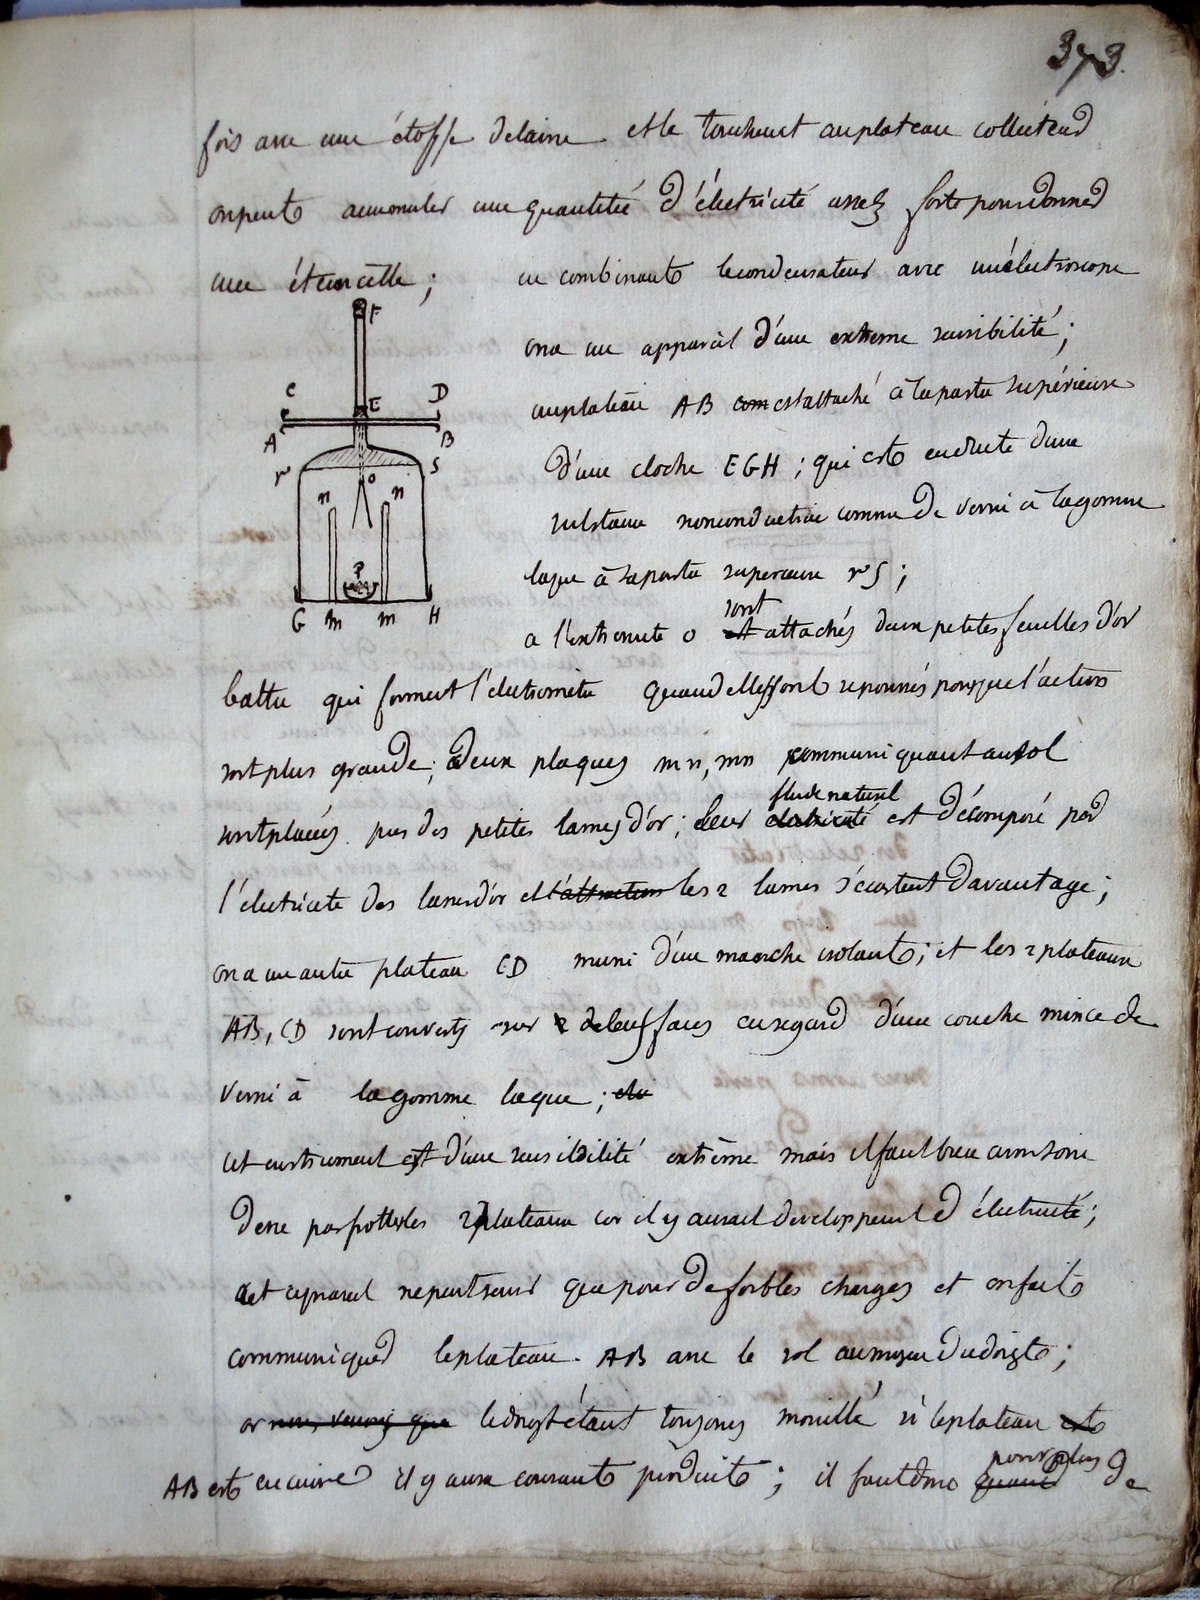 373.
fois avec une étoffe de laine et le touchant au plateau collecteur
on peut accumuler une quantité d'électricité assez forte pour donner
une étincelle ; en combinant le condensateur avec un électroscope
F
on a un appareil d'une extrême sensibilité ;
C E D
au plateau AB com est attaché à la partie supérieure
A B
d'une cloche EGH ; qui est enduite d'une
r S
o
n n
substance non conductrice comme de verni à la gomme
laque à sa partie superieure rS ;
P
G m m H
sont
a l'extremite o est attachés deux petites feuilles d'or
battu qui forment l'electromètre quand elles sont repoussés pour que l'action
soit plus grande ; deux plaques mn, mn communiquant au sol
sont placées près des petites lames d'or ; leur electricité est décomposé par
fluide naturel
l'électricité des lames d'or et l'attraction les 2 lames s'écartent davantage ;
on a un autre plateau CD muni d'une manche isolant ; et les 2 plateaux
AB, CD sont couverts sur 2 de leurs faces en regard d'une couche mince de
verni à la gomme laque ;
cet instrument est d'une sensibilité extrême mais il faut bien avoir soin
de ne pas frotter les 2 plateaux car il y aurait developpement d'électricité ;
cet appareil ne peut servir que pour de foibles charges et on fait
communiquer le plateau AB avec le sol au moyen du doigt ;
or nous venons que le doigt étant toujours mouillé si le plateau est
AB est en cuivre il y aura courant produit ; il faut donc quand de
pour plus